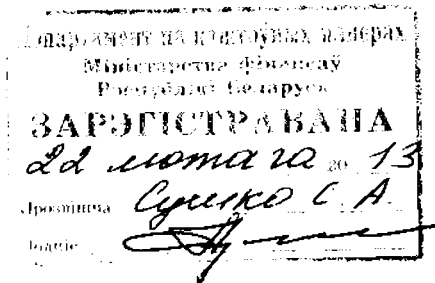 Дэпартамент па каштоўных паперах
Міністэрства фінансаў
Рэспублікі Беларусь
ЗАРЭГІСТРАВАНА
22 лютага 20 13
Прозвішча Сушко С. А.
Подпіс